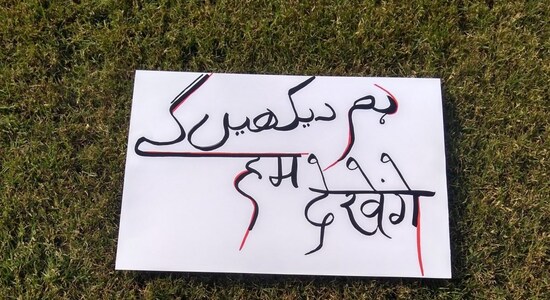 ہم دیکھیں گے
हम देखेंगे